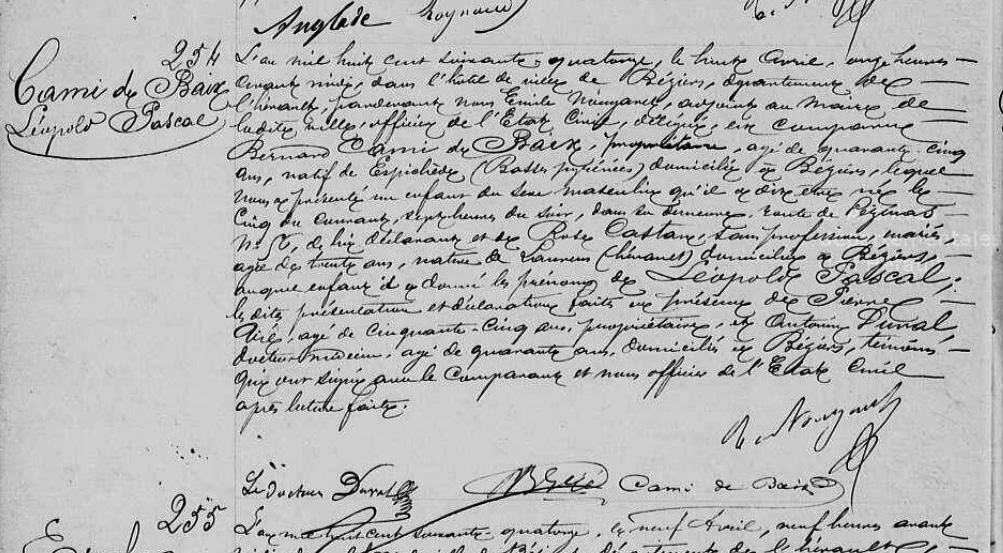 Anglade Reynaud
254
Cami de Baix
Léopold Pascal
L'an mil huit cent soixante-quatorze, le huit Avril, onze heures
avant midi, dans l'hôtel de ville de Béziers, département de
l'hérault, pardevant nous Emile adjoint au Maire de
ladite ville, officier de l'Etat Civil, délégué, est comparu
Bernard Cami de Baix, propriétaire, agé de quarante-cinq
ans, natif de Espichède (Basses pyrénées) domicilié à Béziers, lequel
nous a présenté un enfant du sexe masculin qu'il a dit être né le
Cinq du courant, sept heures du soir, dans sa demeure, route de Pézénas
N° de lui déclarant et de Rose Castan, sans profession, mariés,
agée de trente ans, native de Laurens (hérault) domiciliée à Béziers,
auquel enfant il a donné les prénoms de Léopold Pascal;
les dites présentation et déclaration faites en présence de Pierre
agé de Cinquante-Cinq ans, propriétaire, et Antoine Duval,
docteur médecin, agé de quarante ans, domiciliés à Béziers, témoins
qui ont signé avec le Comparant et nous officier de l'Etat Civil
après lecture faite.
Le Docteur Duval Cami de Baix
255
L'an mil huit cent soixante-quatorze, le neuf Avril, neuf heures avant